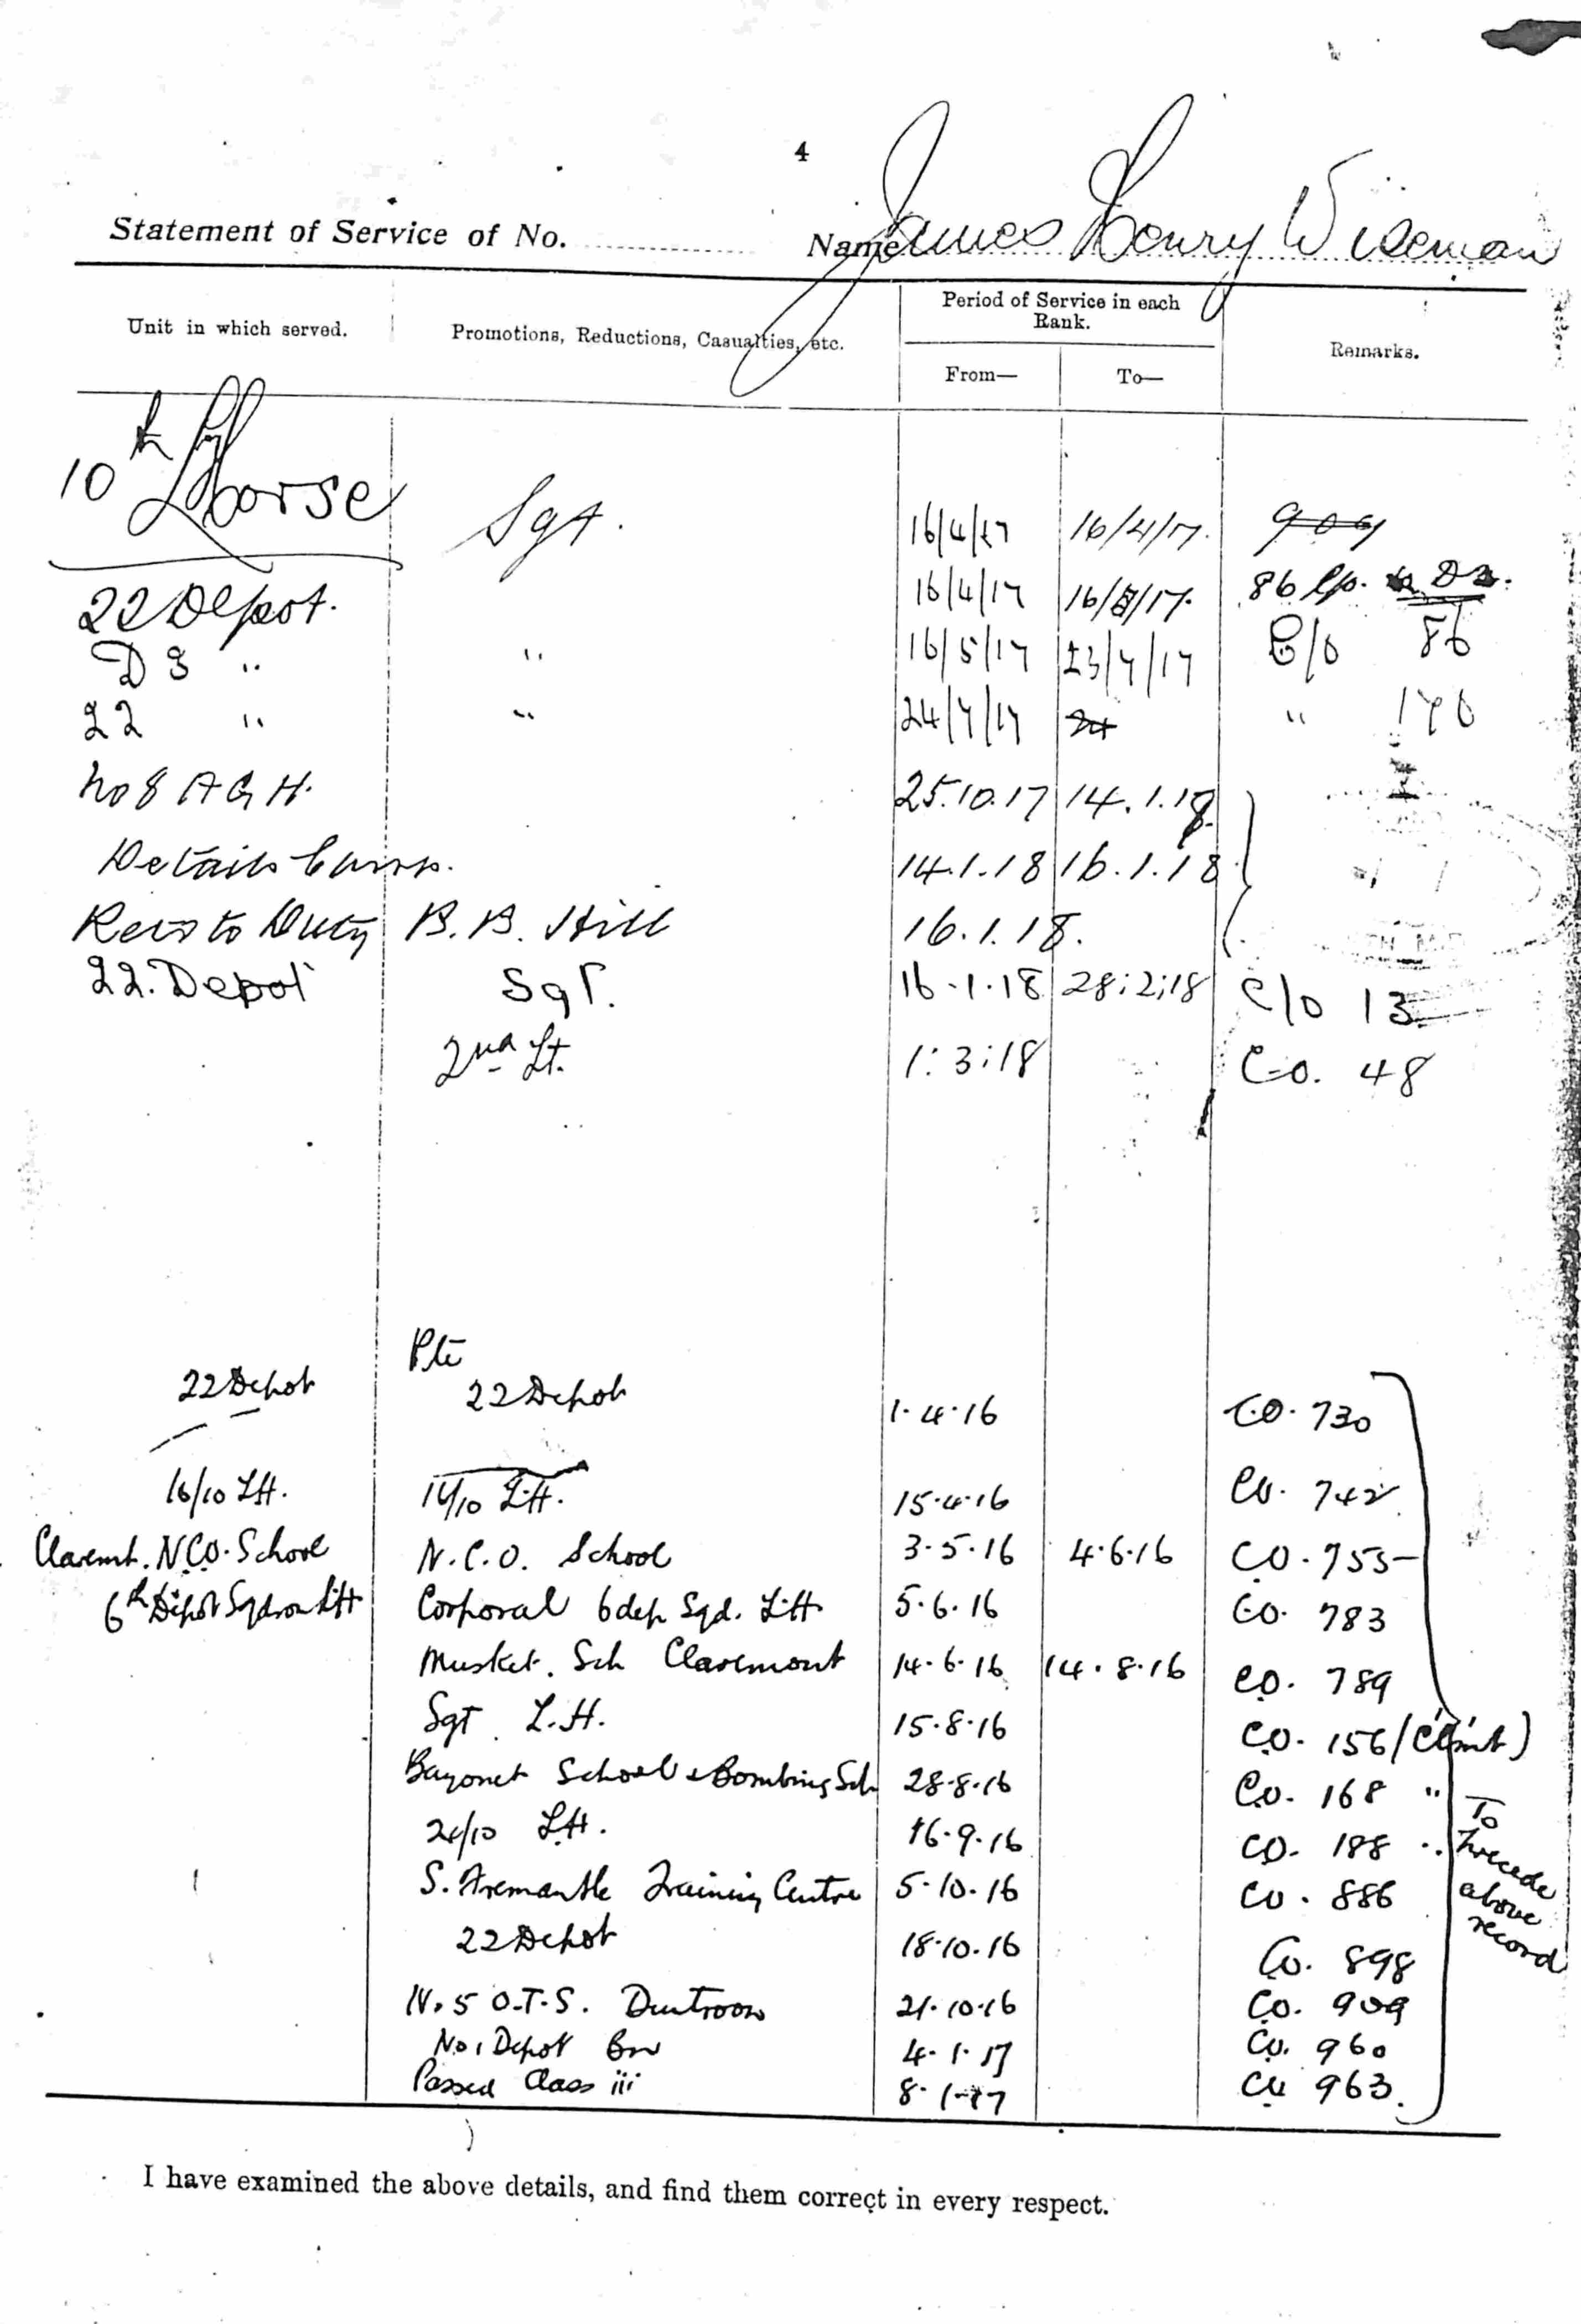 4
Statement of Service of No. Name James Henry Wiseman
Unit in which served. Promotions, Reductions, Casualties, etc. Period of Service in each Rank. Remarks.
From— To—
10th L Horse Sgt. 16/4/17 16/4/17. 909
22 Depot. 16/4/17 16/5/17. 86 D3.
D3 " " 16/5/17 23/7/17 C/O 86
22 " " 24/7/17 " 170
No 8 A G H. 25.10.17 14.1.18
Details Camp. 14.1.18 16.1.18
Retd to Duty B.B. Hill 16.1.18.
22. Depot Sgt. 16.1.18 28:2:18 C/O 13
2nd Lt. 1:3:18 C.O. 48
Pte
22 Depot 22 Depot 1.4.16 C.O. 730
16/10 LH. 16/10 L.H. 15.4.16 CO. 742
Claremt. N.C.O. School N.C.O. School 3.5.16 4.6.16 CO. 755
6th Depot Sqdron L.H Corporal 6 dep Sqd. L.H. 5.6.16 CO. 783
Musket. Sch Claremont 14.6.16 14.8.16 CO. 789
Sgt. L.H. 15.8.16 CO. 156 (Clmt)
Bayonet School & Bombing Sch 28.8.16 CO. 168 "
24/10 LH. 16.9.16 CO. 188 "
S. Fremantle Training Centre 5.10.16 CO. 886
22 Depot 18.10.16 CO. 898
No 5 O.T.S. Duntroon 21.10.16 CO. 909
No 1 Depot Bn 4.1.17 CO. 960
Passed Class iii 8.1.17 CO 963.
To
precede
above
record
I have examined the above details, and find them correct in every respect.